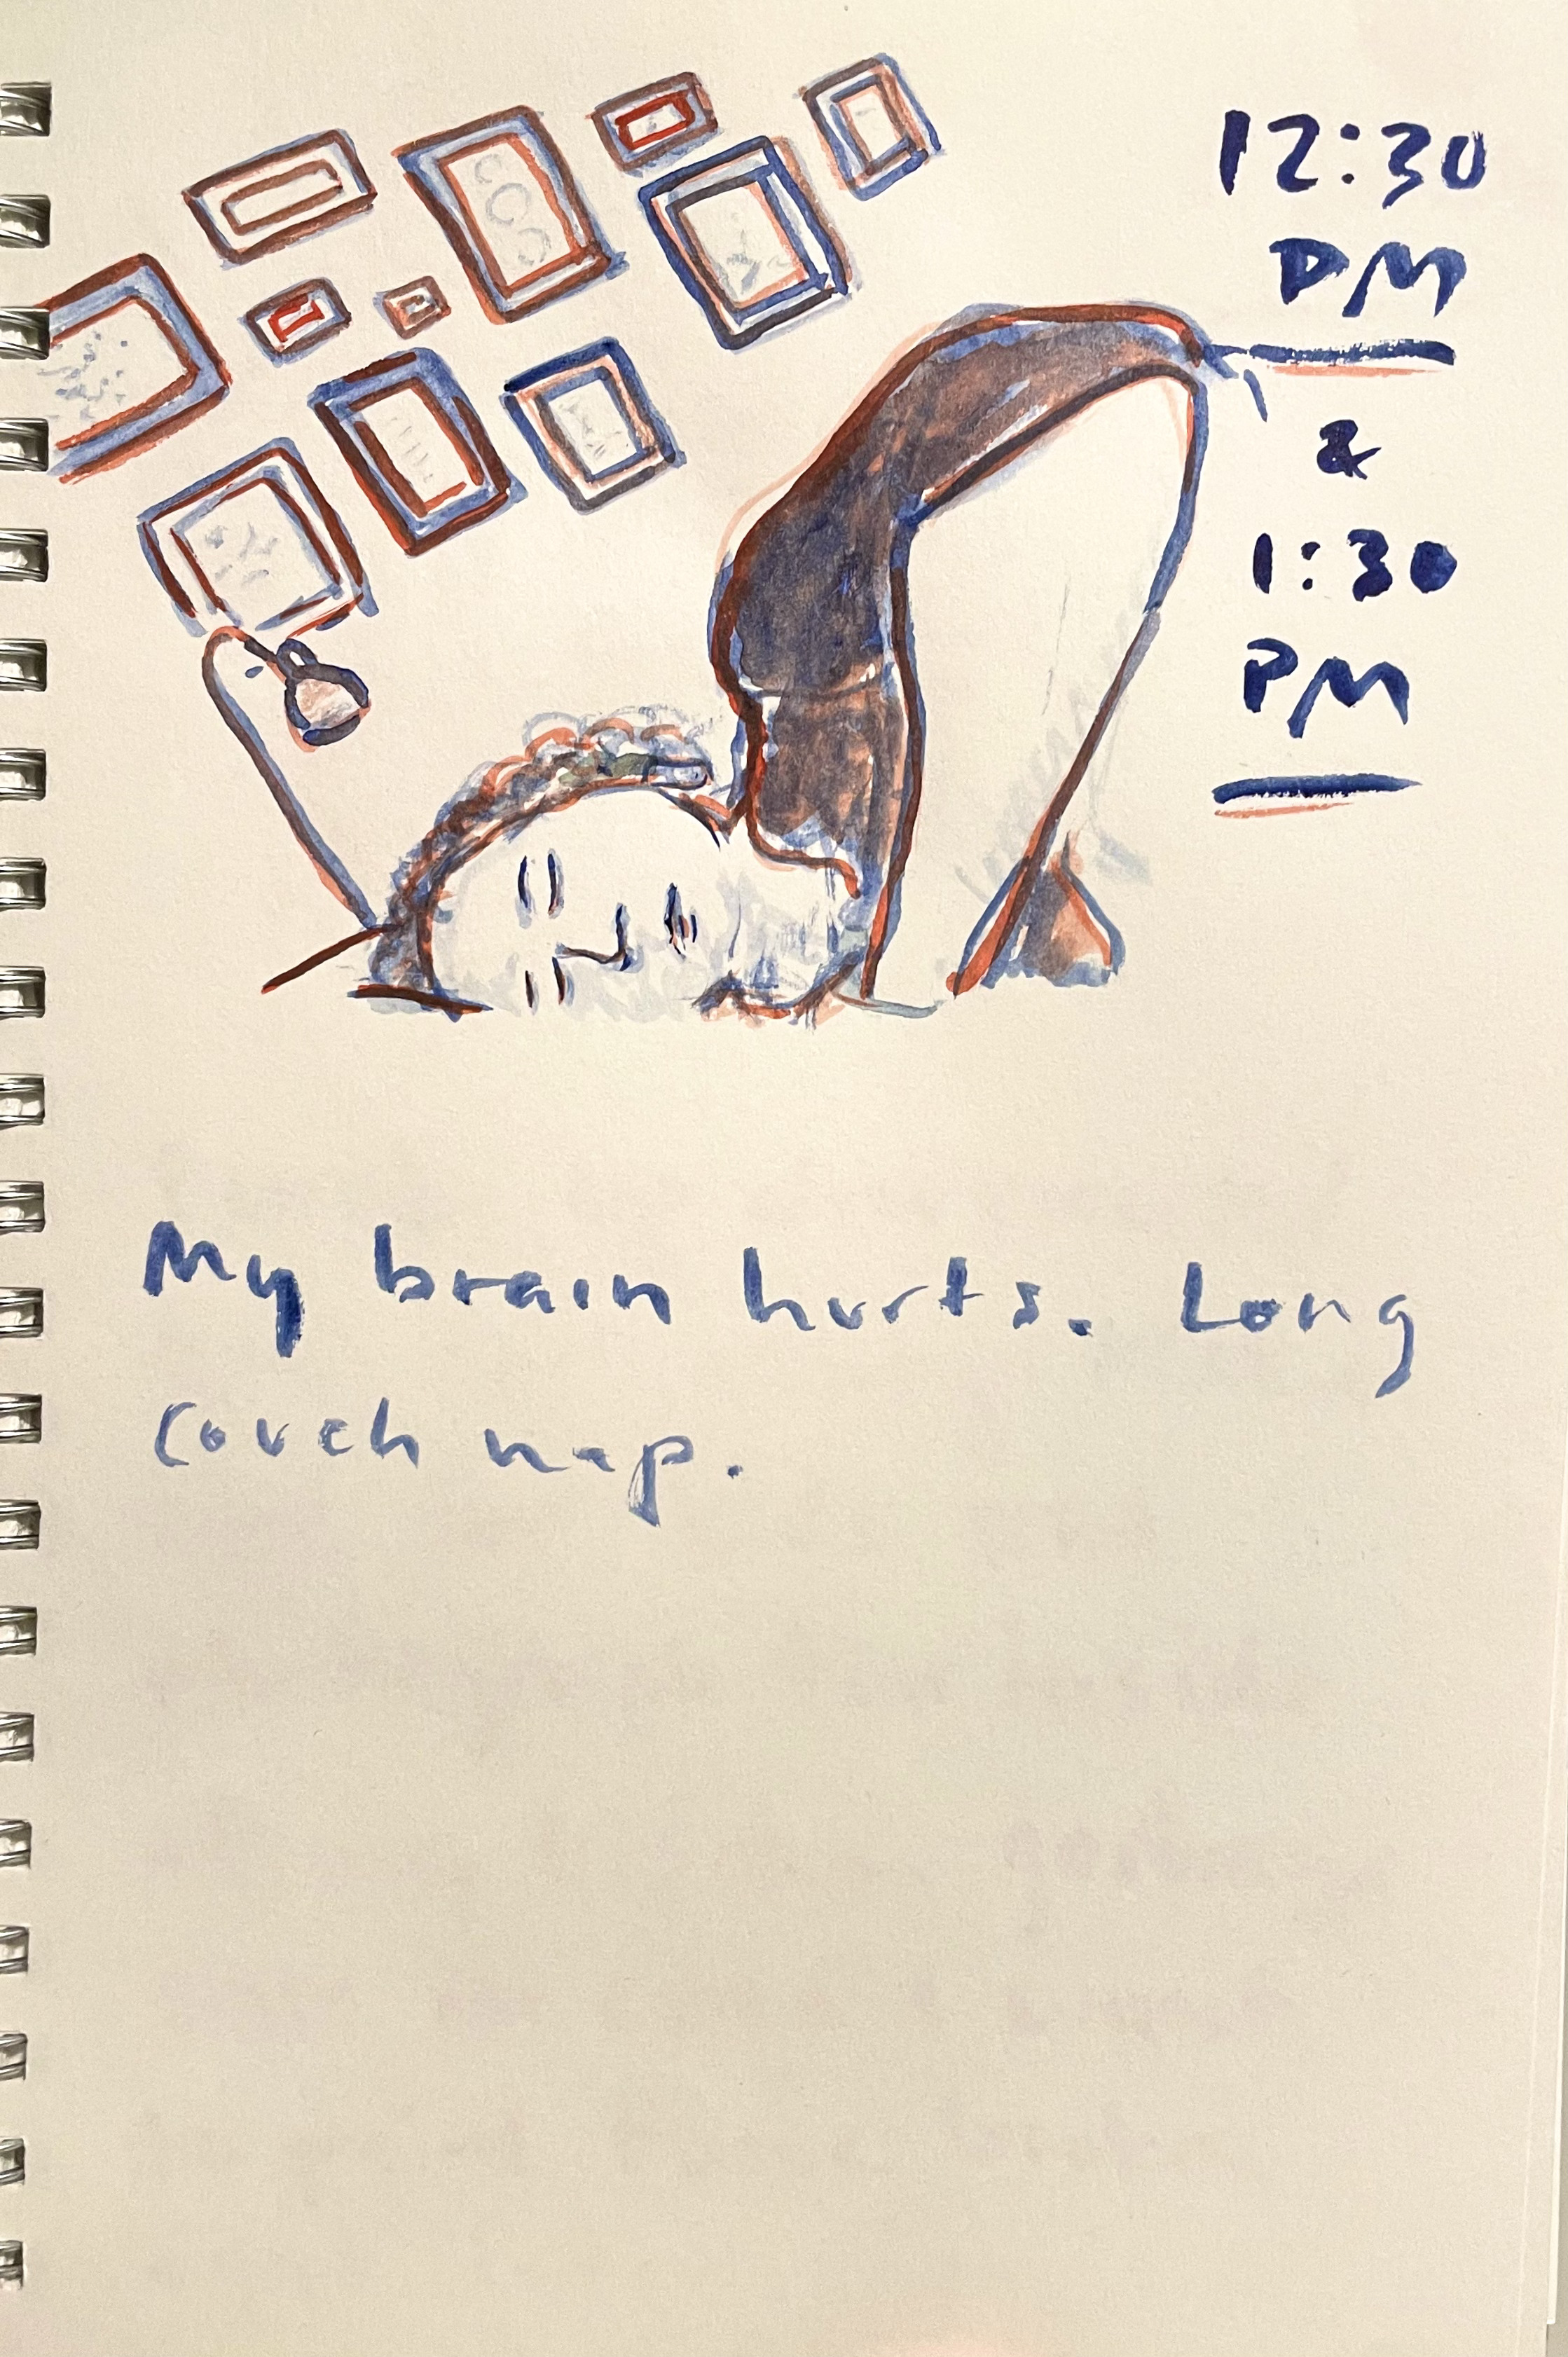 12:30
PM
&
1:30
PM
My brain hurts. Long
couch nap.